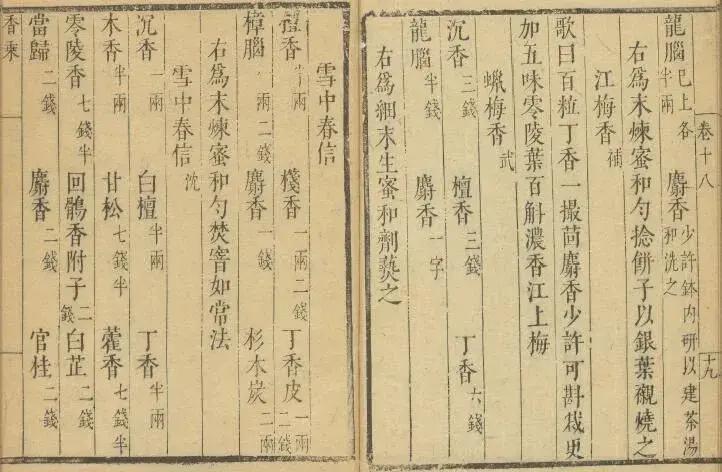 卷十八 十九
龍腦 已上各半兩 麝香 少許鉢内研以建茶湯和洗之
右爲末煉蜜和勻捻餅子以銀葉襯燒之
江梅香 補
歌曰百粒丁香一撮茴麝香少許可斟裁更
加五味零陵葉百斛濃香江上梅
蠟梅香 武
沉香 三錢 檀香 三錢 丁香 六錢
龍腦 半錢 麝香 一字
右爲細末生蜜和劑爇之
雪中春信
檀香 半兩 棧香 一兩二錢 丁香皮 一兩二錢
樟腦 一兩二錢 麝香 一錢 杉木炭 二兩
右爲末煉蜜和勻焚窨如常法
雪中春信 沈
沉香 一兩 白檀 半兩 丁香 半兩
木香 半兩 甘松 七錢半 藿香 七錢半
零陵香 七錢半 回鶻香附子 二錢 白芷 二錢
當歸 二錢 麝香 二錢 官桂 二錢
香乘